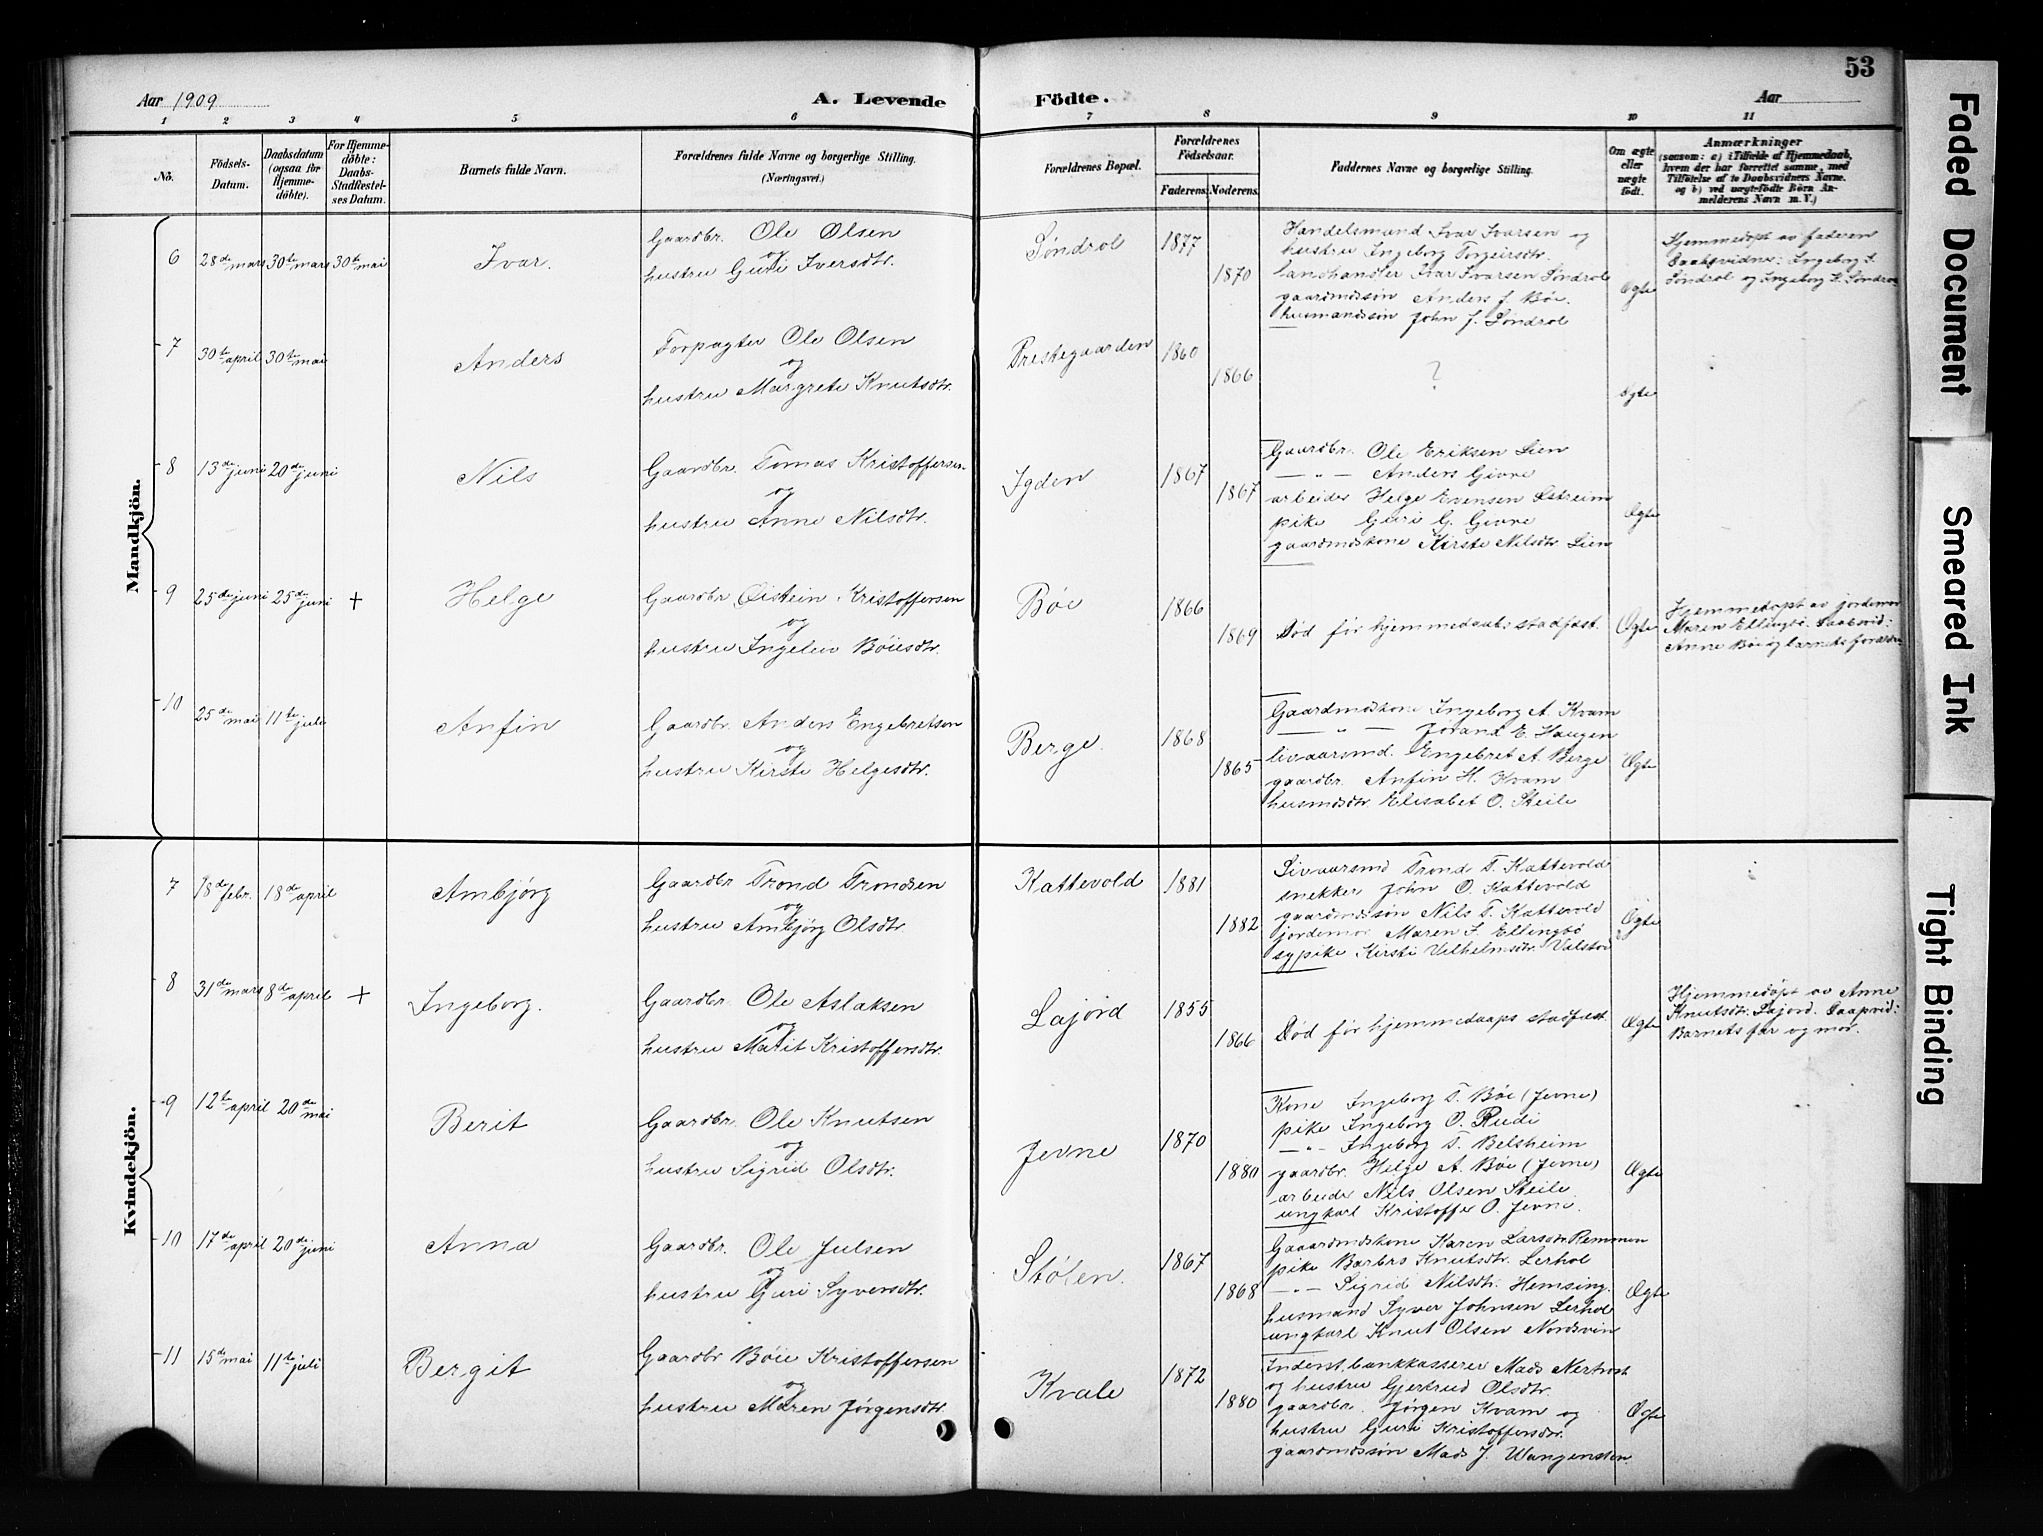 53
Aar 1909
A. Levende Födte.
Aar
1 2 3 4 5 6 7 8 9 10 11
No.
Födsels-Datum.
Daabsdatum (ogsaa for Hjemme-döbte).
For Hjemme-döbte: Daabs-Stadfæstel-ses Datum.
Barnets fulde Navn.
Forældrenes fulde Navne og borgerlige Stilling.
(Næringsvei.)
Forældrenes Bopæl.
Forældrenes Födselsaar.
Faderens. Moderens.
Faddernes Navne og borgerlige Stilling.
Om ægte eller uægte födt.
Anmærkninger
(saasom: a) i Tilfælde af Hjemmedaab,
hvem der har forrettet samme, med
Tilföielse af to Daabsvidners Navne,
og b) ved uægtefödte Börn An-
melderens Navn m. V.)
Mandkjön.
6 28de mars 30te mars 30te mai Ivar.
Gaardbr. Ole Olsen
og
hustru Guri Iversdtr.
Søndrol 1877 1870
Handelsmand Ivar Ivarsen og
hustru Ingeborg Torgeirsdtr.
landhandler Ivar Ivarsen Søndrol
gaardmdssøn Anders J. Bøe.
husmandssøn John J. Søndrol
Ægte
Hjemmedøpt av faderen
Daabsvidner: Ingeborg I.
Søndrol og Ingeborg T. Søndrol
7 30te april 30te mai Anders
Forpagter Ole Olsen
og
hustru Margrete Knutsdtr.
Prestegaarden 1860 1866
?
Ægte
8 13de juni 20de juni Nils
Gaardbr. Tomas Kristoffersen
og
hustru Anne Nilsdtr.
Igden 1867 1867
Gaardbr. Ole Eriksen Lien
— " — Anders Givre
arbeider Helge Evensen Østreim
pike Guri G. Givre
gaardmdskone Kirsti Nilsdtr Lien
Ægte
9 25de juni 25de juni + Helge
Gaardbr Øistein Kristoffersen
og
hustru Ingelev Bøiesdtr.
Bøe 1866 1869
Død før hjemmedaabs stadfæst.
Ægte
Hjemmedøpt av jordemor
Maren Ellingbø. Daabsvid:
Anne Bøe og barnets forældre
10 25de mai 11te juli Anfin
Gaardbr. Anders Engebretsen
og
hustru Kirsti Helgesdtr.
Berge 1868 1865
Gaardmdskone Ingeborg A. Kvam
— " — Jørand E. Haugen
livaarsmd. Engebret A. Berge
gaardbr. Anfin H. Kvam
husmdsdtr Elisabet O. Steile
Ægte
Kvindekjön.
7 18de febr. 18de april Ambjørg
Gaardbr Trond Trondsen
og
hustru Ambjørg Olsdtr.
Kattevold 1881 1882
Livaarsmd Trond T. Kattevold
snekker John O. Kattevold
gaardmdssøn Nils T. Kattevold
jordemor Maren I. Ellingbø
sypike Kirsti Vilhelmsdtr. Valstad
Ægte
8 31de mars 8de april + Ingeborg.
Gaardbr. Ole Aslaksen
og
hustru Marit Kristoffersdtr.
Lajord 1855 1866
Død før hjemmedaaps stadfæst.
Ægte
Hjemmedøpt av Anne
Knutsdtr. Lajord. Daapvid:
Barnets far og mor.
9 12te april 20de mai Berit
Gaardbr. Ole Knutsen
og
hustru Sigrid Olsdtr.
Jevne 1870 1880
Kone Ingeborg T. Bøe (Jevne)
pike Ingeborg O. Rudi
— " — Ingeborg T. Belsheim
gaardbr. Helge A. Bøe (Jevne)
arbeider Nils Olsen Steile
ungkarl Kristoffer O. Jevne.
Ægte
10 17de april 20de juni Anna
Gaardbr. Ole Julsen
og
hustru Guri Syversdtr.
Stølen. 1867 1868
Gaardmdskone Karen Larsdtr Remmen
pike Barbro Knutsdtr. Lerhol
— " — Sigrid Nilsdtr. Hemsing.
husmand Syver Johnsen Lerhol
ungkarl Knut Olsen Nordsvin
Ægte
11 15de mai 11te juli Bergit
Gaardbr Bøie Kristoffersen
og
hustru Maren Jørgensdtr.
Kvale 1872 1880
Indenst. bankkasserer Mads Nertrost
og hustru Gjertrud Olsdtr.
gaardbr. Jørgen Kvam og
hustru Guri Kristoffersdtr.
gaardmdssøn Mads J. Wangensten.
Ægte
Faded Document
Smeared Ink
Tight Binding